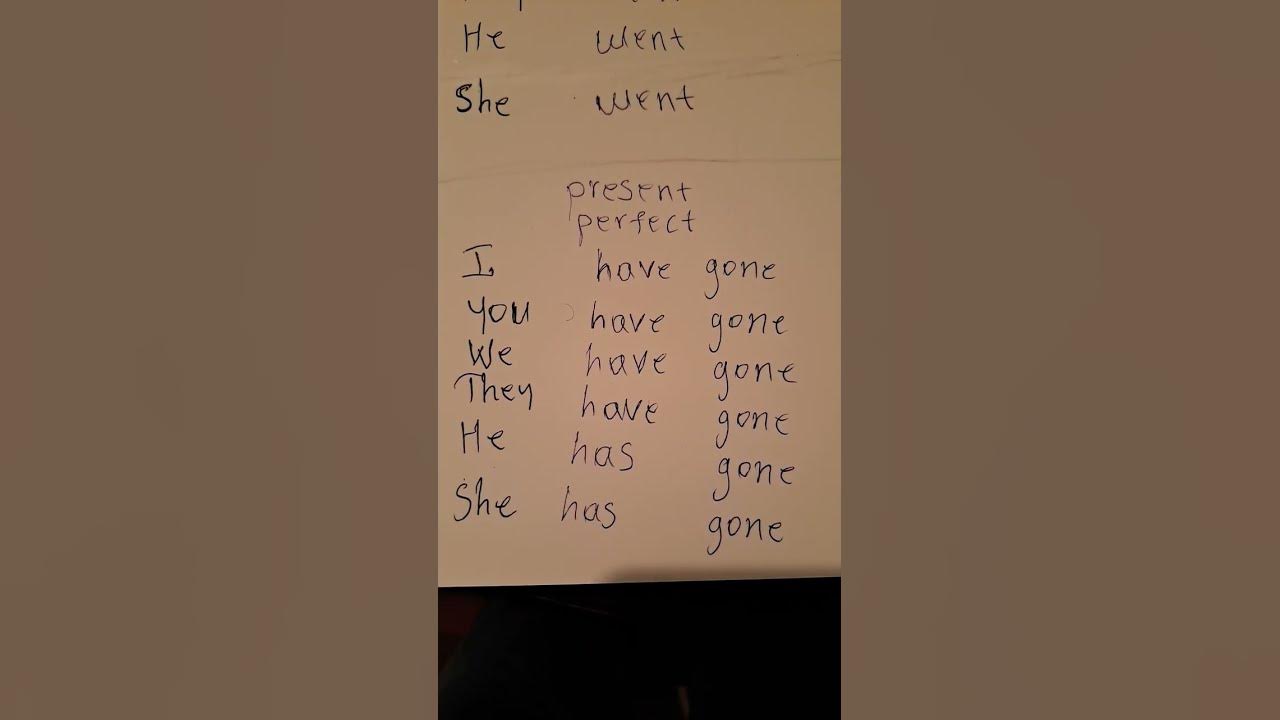 He went
She went
present
perfect
I have gone
you have gone
We have gone
They have gone
He has gone
She has gone